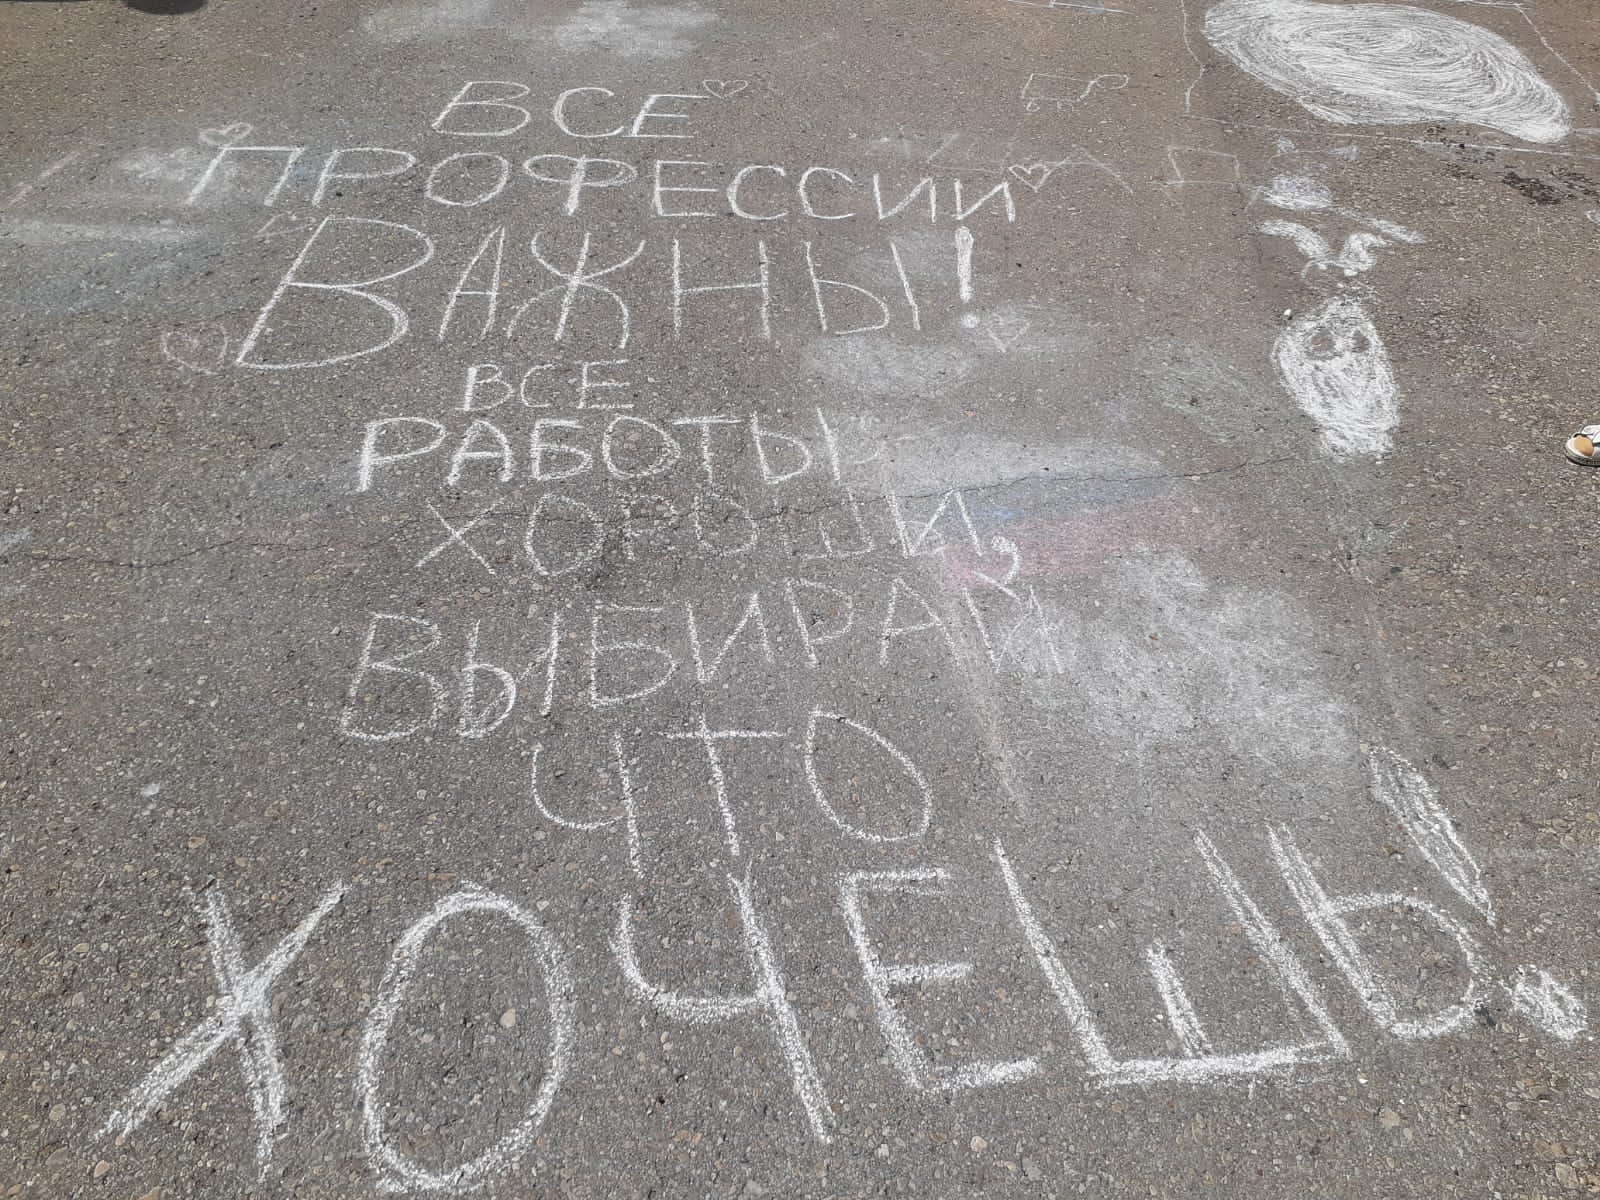 ВСЕ
ПРОФЕССИИ
ВАЖНЫ!
ВСЕ
РАБОТЫ
ХОРОШИ,
ВЫБИРАЙ
ЧТО
ХОЧЕШЬ!